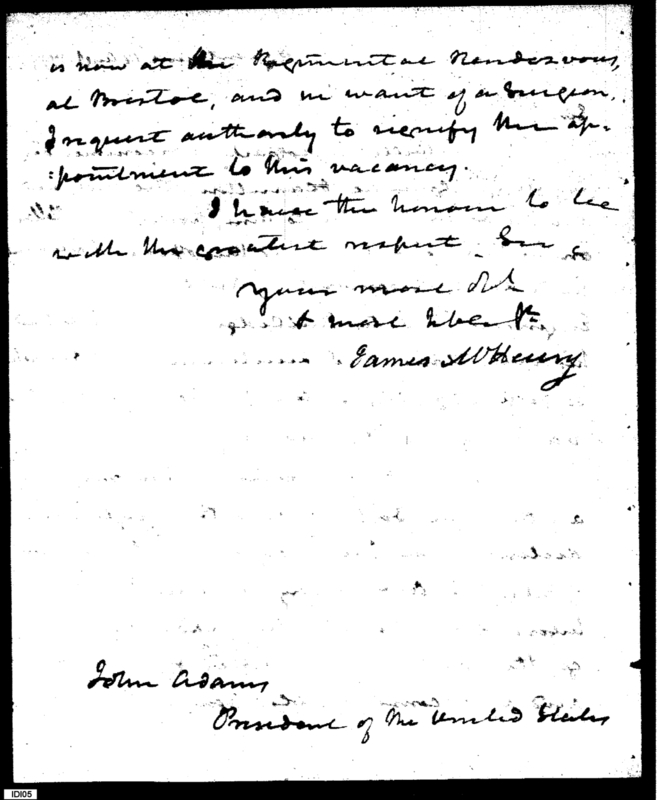 is now at the Regimental Rendezvous,
at Bristol, and in want of a Surgeon.
I request authority to signify the ap-
:pointment to this vacancy.
I have the honour to be
with the greatest respect Sir,
your most Obt
& most hble St
James McHenry
John Adams
President of the United States
IDI05